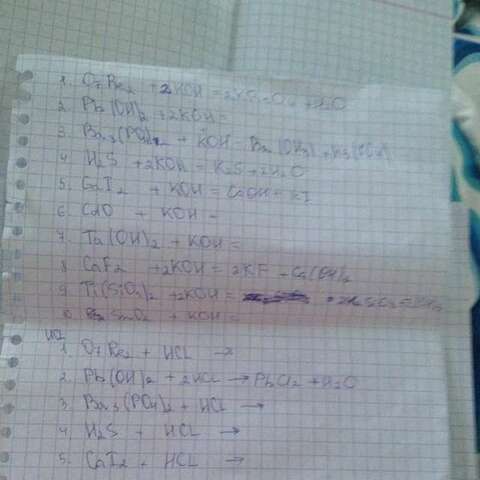 1. O7Re2 + 2KOH = 2K + H2O
2. Pb(OH)2 + 2KOH =
3. Ba3(PO4)2 + KOH Ba
4. H2S + 2KOH = K2S + 2H2O
5. CaI2 + KOH = CaOH = KI
6. CdO + KOH -
7. Ta(OH)2 + KOH =
8. CaF2 + 2KOH = 2KF - Ca(OH)2
9. Ti(SiO3)2 + 2KOH =
10. SnO2 + KOH =
HCl
1. O7Re2 + HCL →
2. Pb(OH)2 + 2HCL → PbCl2 + H2O
3. Ba3(PO4)2 + HCL →
4. H2S + HCL →
5. CaI2 + HCL →